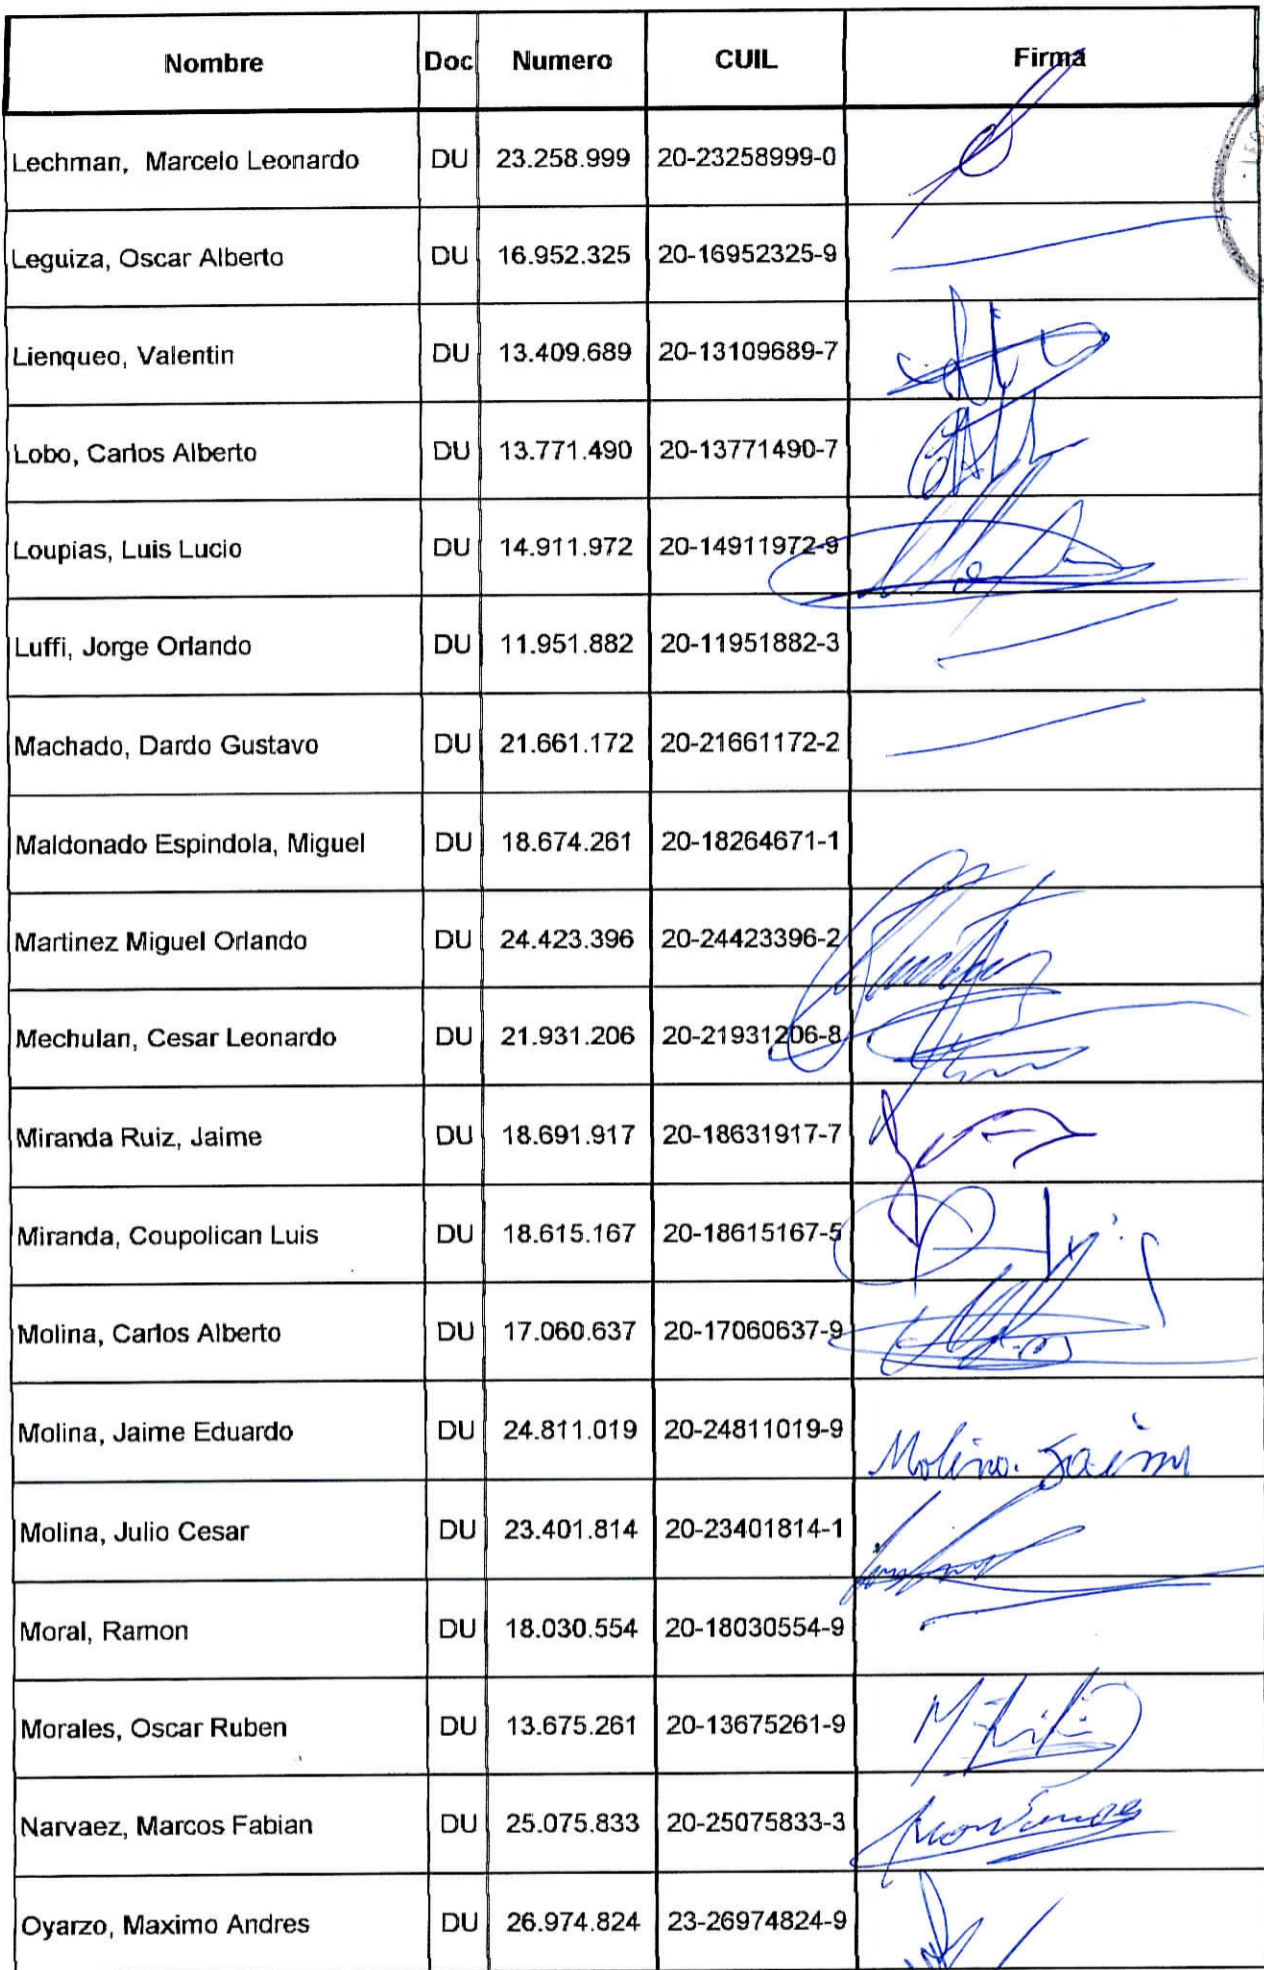 Nombre Doc Numero CUIL Firma
Lechman, Marcelo Leonardo DU 23.258.999 20-23258999-0
Leguiza, Oscar Alberto DU 16.952.325 20-16952325-9
Lienqueo, Valentin DU 13.409.689 20-13109689-7
Lobo, Carlos Alberto DU 13.771.490 20-13771490-7
Loupias, Luis Lucio DU 14.911.972 20-14911972-9
Luffi, Jorge Orlando DU 11.951.882 20-11951882-3
Machado, Dardo Gustavo DU 21.661.172 20-21661172-2
Maldonado Espindola, Miguel DU 18.674.261 20-18264671-1
Martinez Miguel Orlando DU 24.423.396 20-24423396-2
Mechulan, Cesar Leonardo DU 21.931.206 20-21931206-8
Miranda Ruiz, Jaime DU 18.691.917 20-18631917-7
Miranda, Coupolican Luis DU 18.615.167 20-18615167-5
Molina, Carlos Alberto DU 17.060.637 20-17060637-9
Molina, Jaime Eduardo DU 24.811.019 20-24811019-9 Molina. Jaime
Molina, Julio Cesar DU 23.401.814 20-23401814-1
Moral, Ramon DU 18.030.554 20-18030554-9
Morales, Oscar Ruben DU 13.675.261 20-13675261-9
Narvaez, Marcos Fabian DU 25.075.833 20-25075833-3
Oyarzo, Maximo Andres DU 26.974.824 23-26974824-9